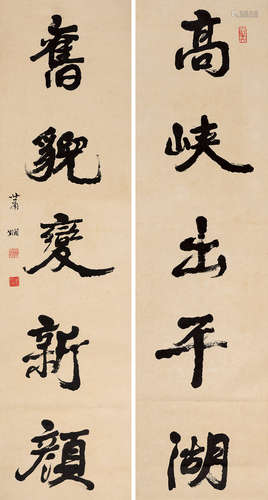 高峡出平湖
舊貌變新顔
萧娴